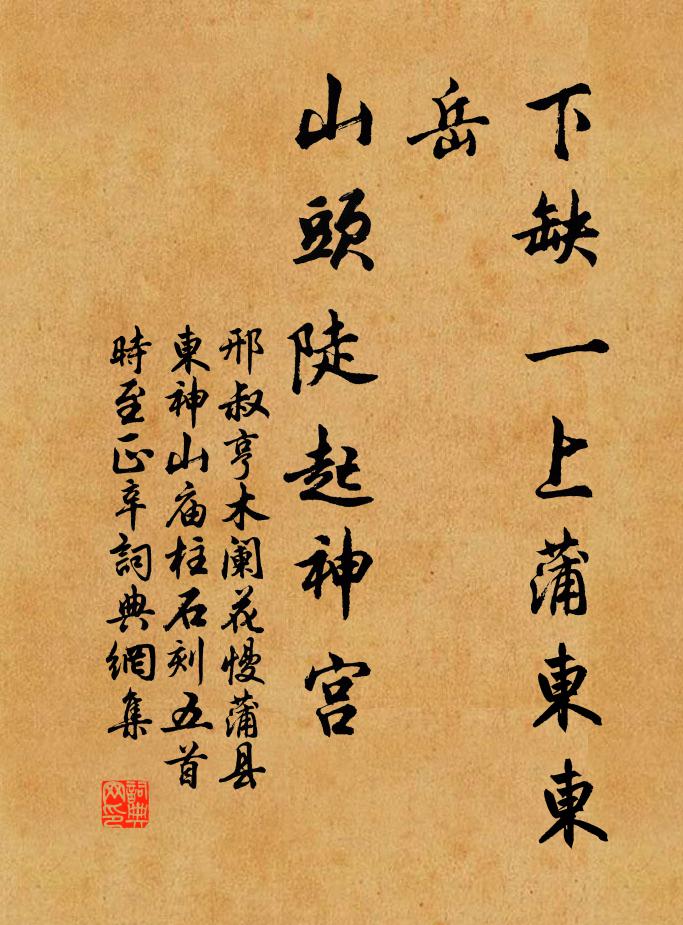 下缺一上蒲東東
岳
山頭陡起神宮
邢叔亨木闌花慢蒲县
東神山庙柱石刻五首
時至正辛詞典網集
詞典网印